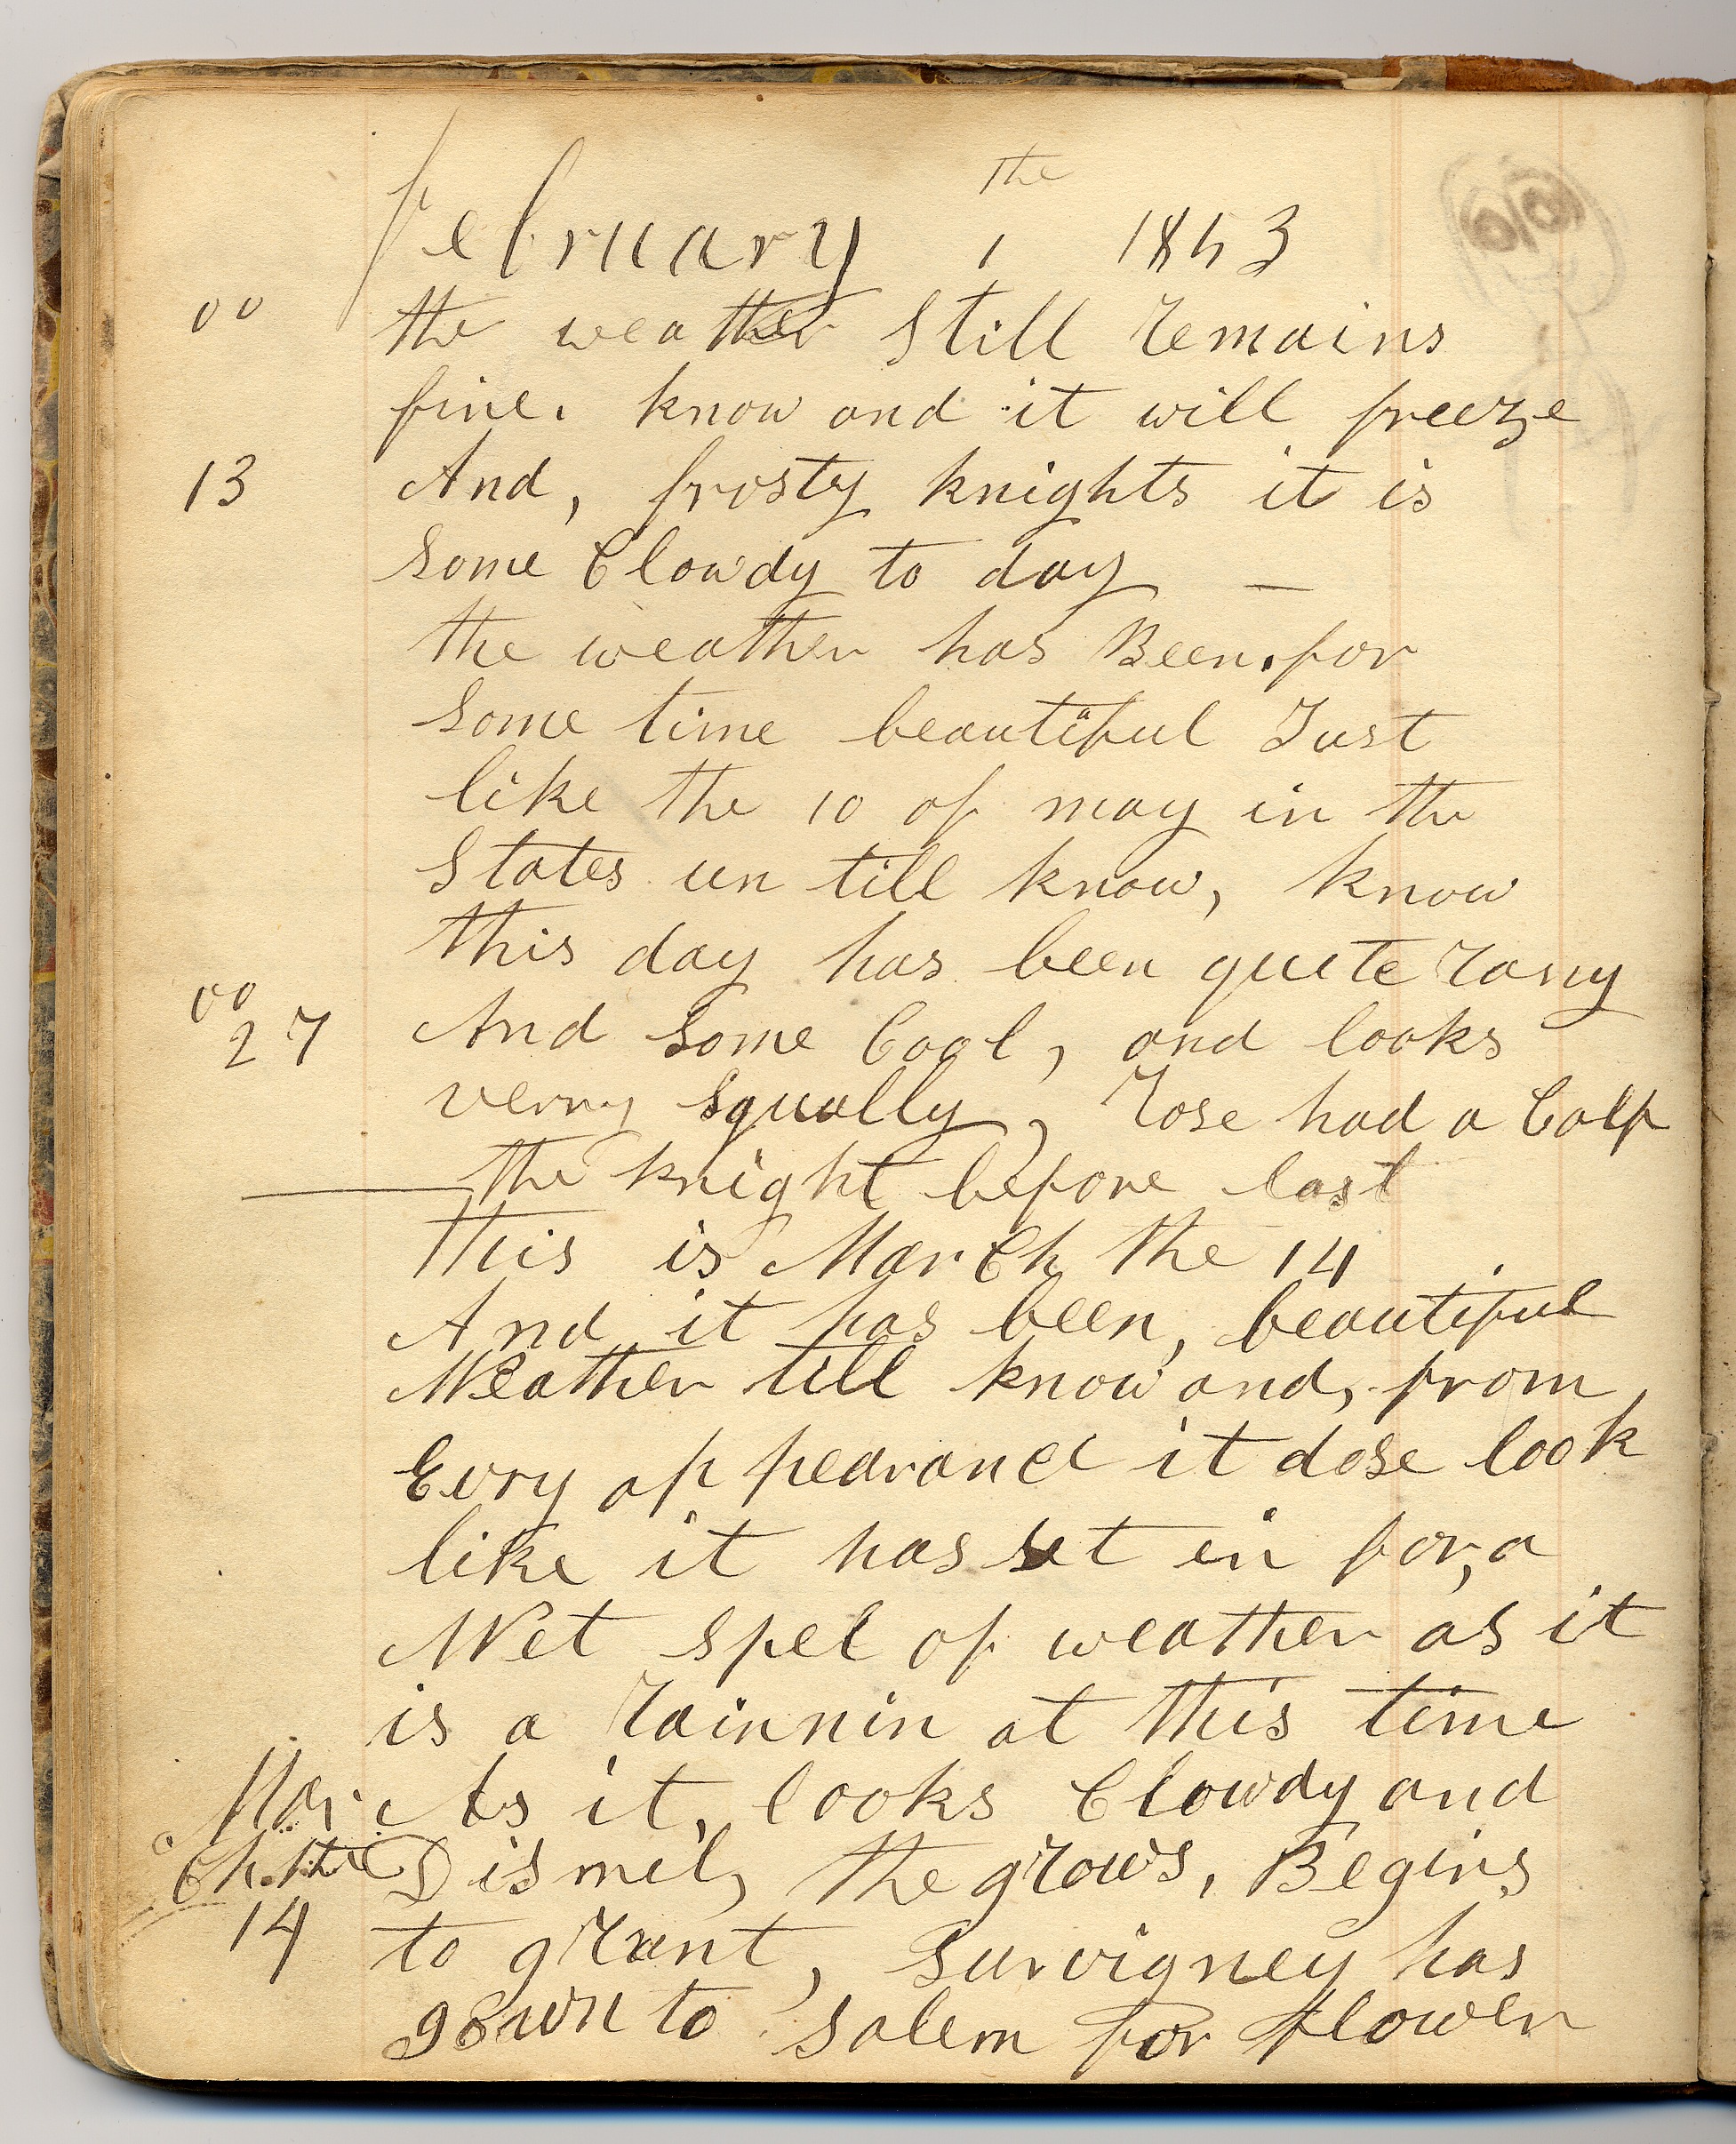 the
February 1 1853
00 the weather Still remains
fine. know and it will freeze
13 And, frosty knights it is
Some Clowdy to day —
the weather has Been. for
Some time beautiful Just
like the 10 of may in the
States un till know, know
this day has been quite rany
00
27 And Some Cool, and looks
verry Squally, Rose had a Calf
the knight before last
This is March the 14
And it has been, beautiful
Weather till know and, from
Evry appearance it dose look
like it has set in for, a
Wet spel of weather as it
is a rainnin at this time
Mar As it, looks Clowdy and
Ch. the Dismil, the grows, Begins
14 to grunt, Survigney has
gown to Salem for flower